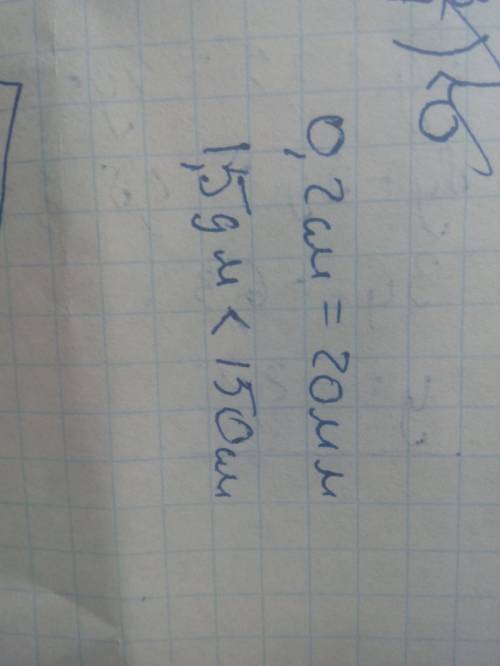 б)
0,2см = 20мм
1,5дм < 150см